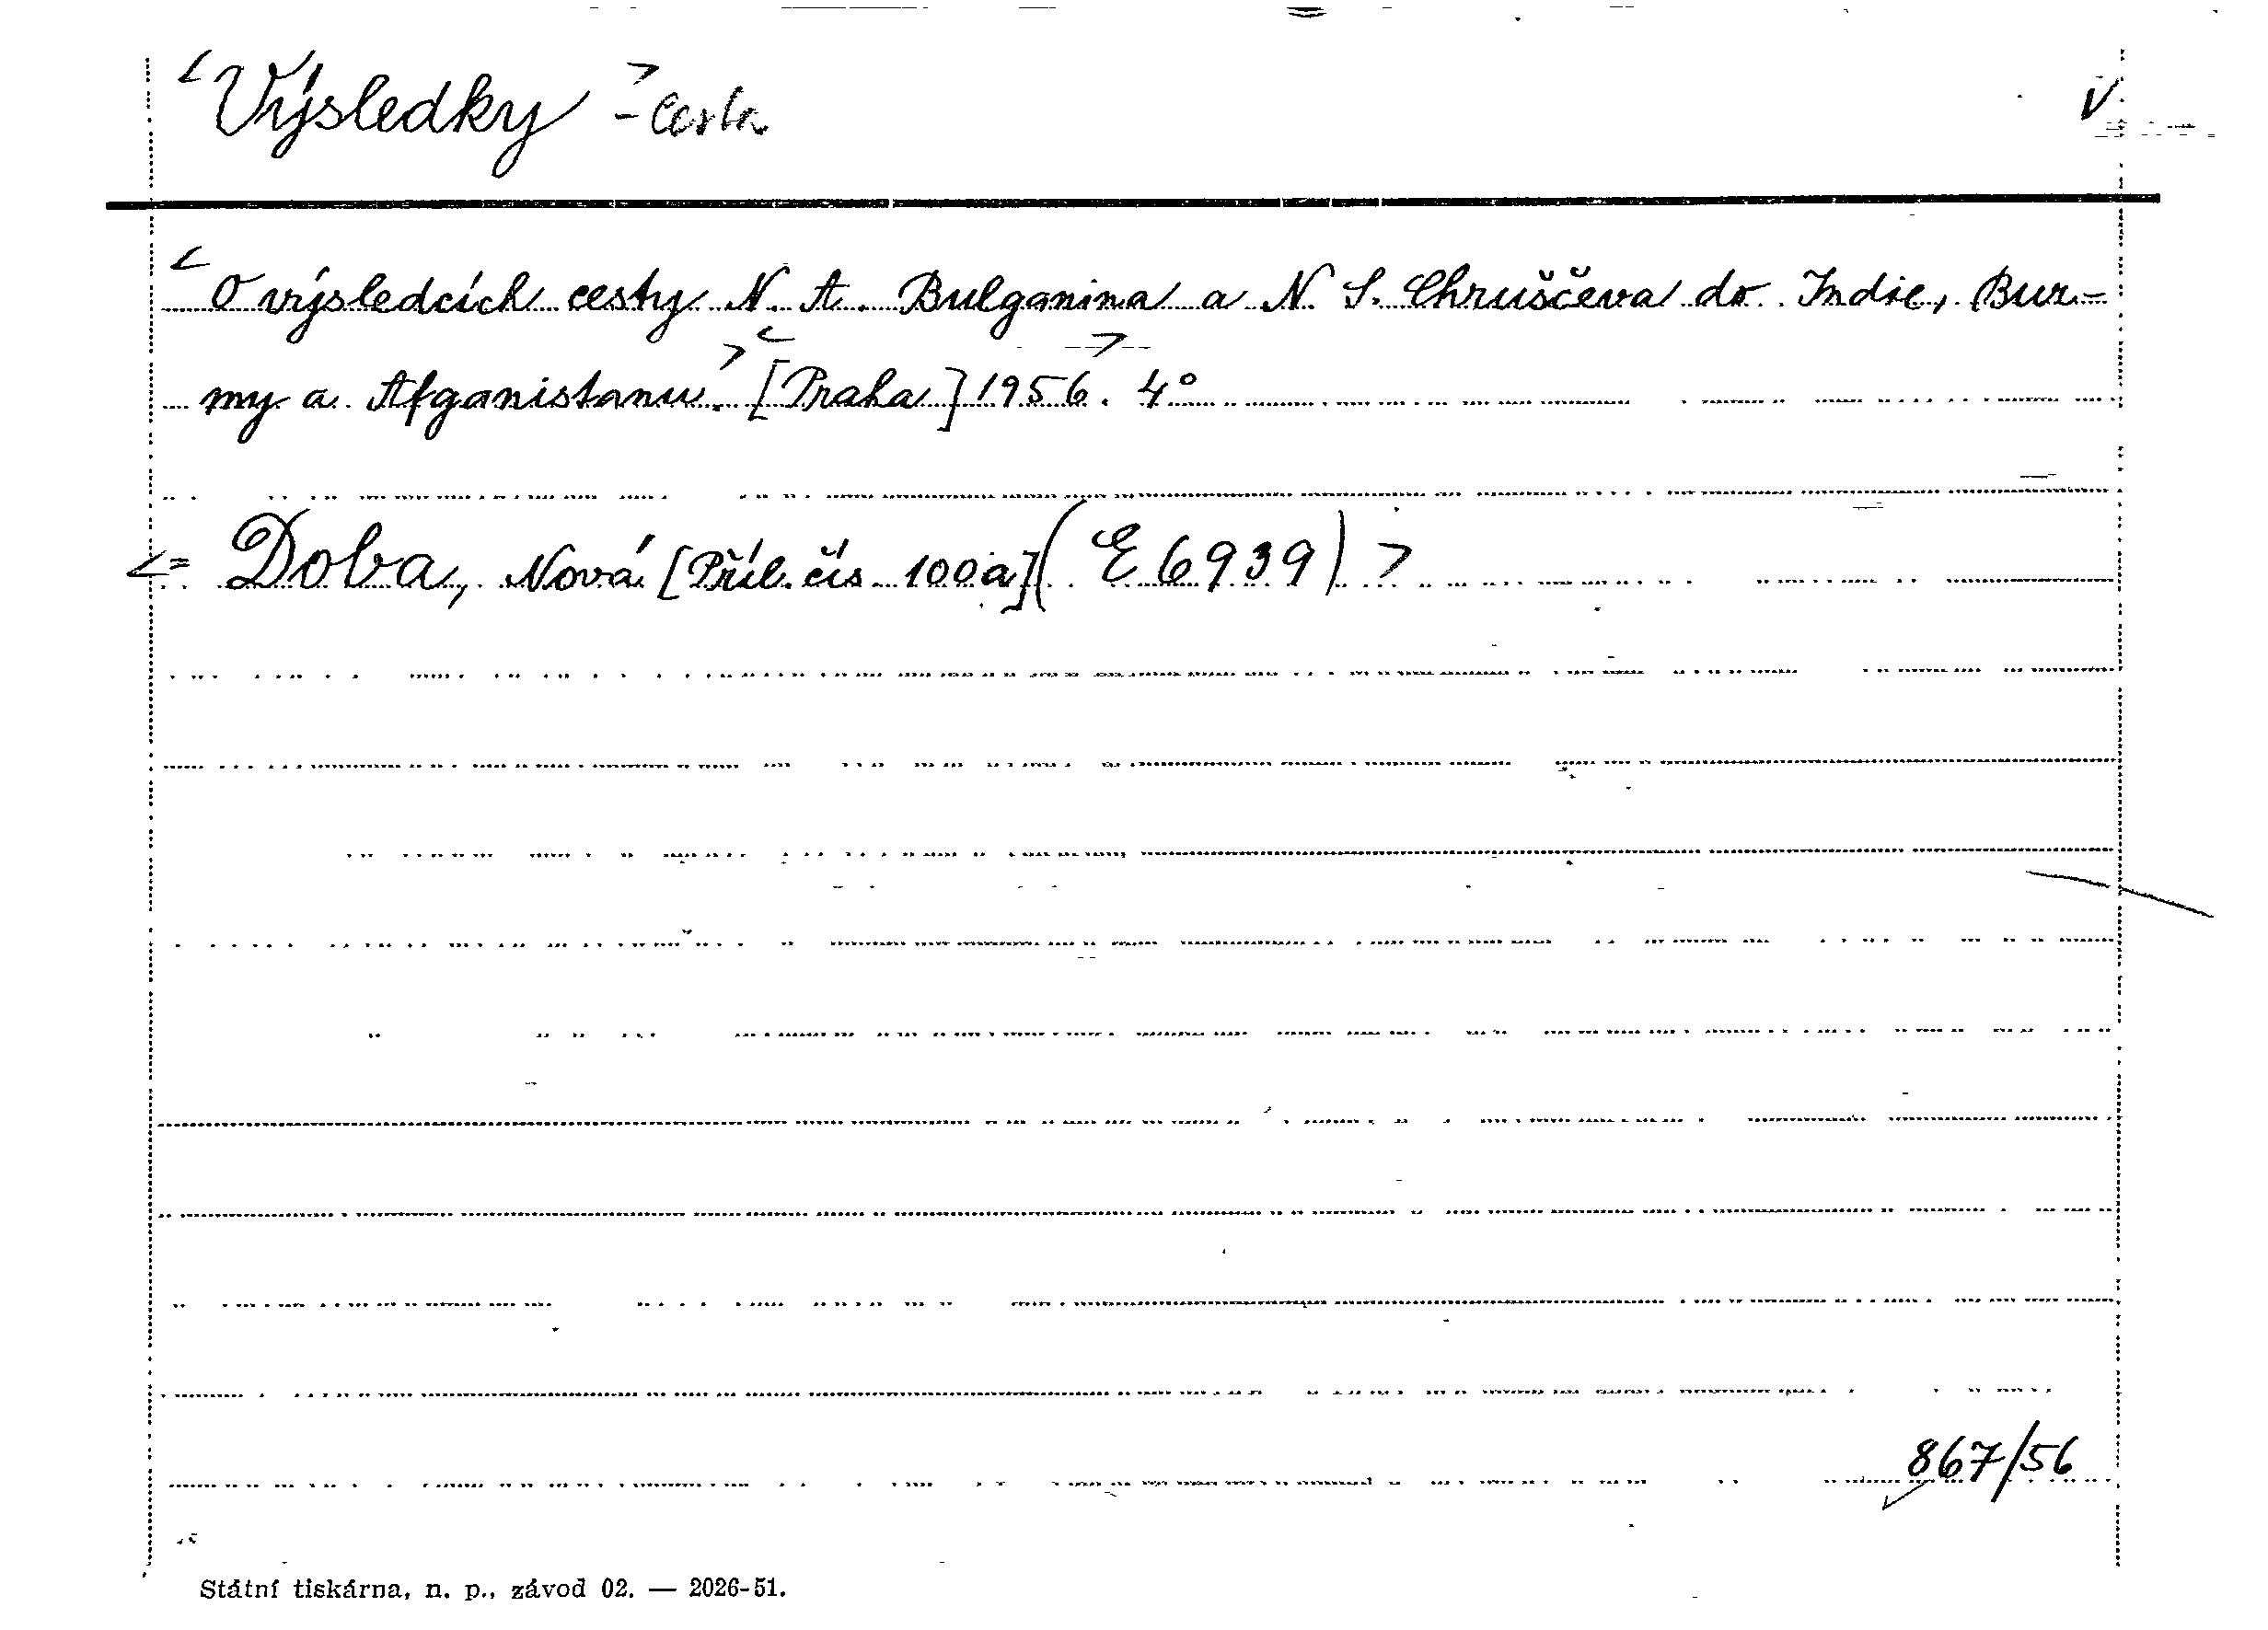 <Výsledky> - Cesta V
<O výsledcích cesty N. A. Bulganina a N. S. Chruščeva do Indie, Bur-
my a Afganistanu.> <[Praha] 1956.> 4°
<= Doba, Nová [Příl. čís 100a] (E 6939)>
867/56
Státní tiskárna, n. p., závod 02. — 2026-51.